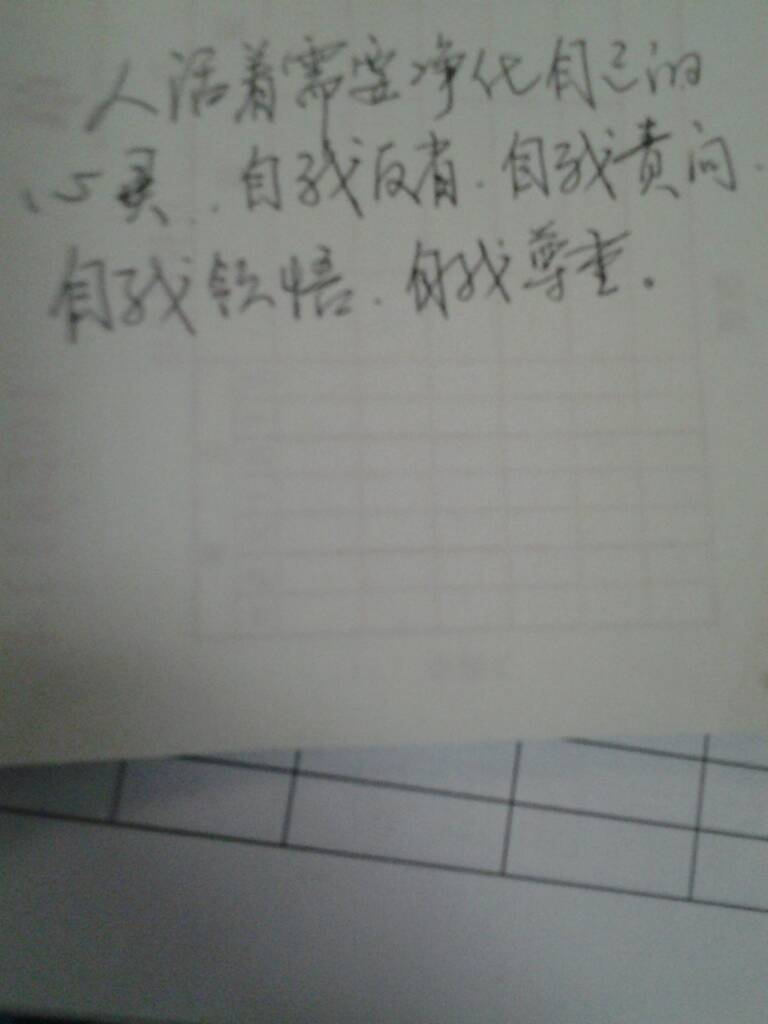 人活着需要净化自己的
心灵、自我反省、自我责问、
自我领悟、自我尊重。